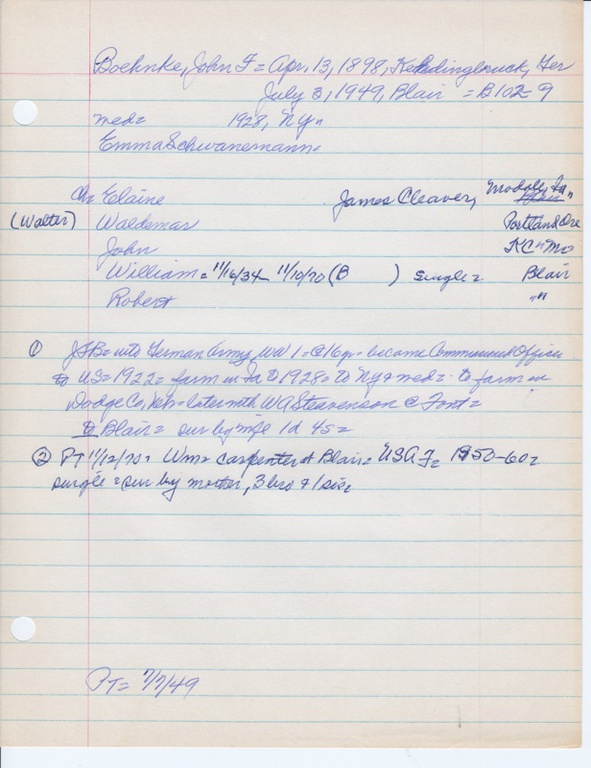 Boehnke, John F = Apr. 13, 1898, Ger
July 3, 1949, Blair = B102-9
med= 1928, NY"
Emma Schwanemann=
Ch Elaine James Cleaver, Modale, Ia"
(Walter) Waldemar Portland Ore
John KC" Mo
William = 11/16/34 - 11/10/70 (B ) single = Blair
Robert ""
① JFB= into German Army WW 1 = @ 16 yr = became Commissioned Officer
to US = 1922 = farm in Ia to 1928 = to NY & med = to farm in
Dodge Co, Neb = later with WA Steavenson @ Font =
to Blair = sur by wife 1d 4s =
② PT 11/12/70 = Wm = carpenter at Blair = USAF = 1950-60 =
single = sur by mother, 3 bro & 1 sis =
PT = 7/7/49